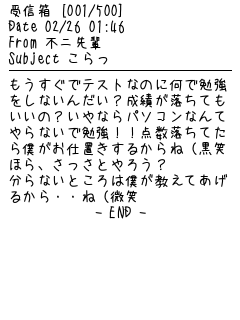 受信箱 [001/500]
Date 02/26 01:46
From 不二先輩
Subject こらっ
もうすぐでテストなのに何で勉強
をしないんだい?成績が落ちても
いいの?いやならパソコンなんて
やらないで勉強!!点数落ちてた
ら僕がお仕置きするからね(黒笑
ほら、さっさとやろう?
分らないところは僕が教えてあげ
るから・・ね(微笑
- END -